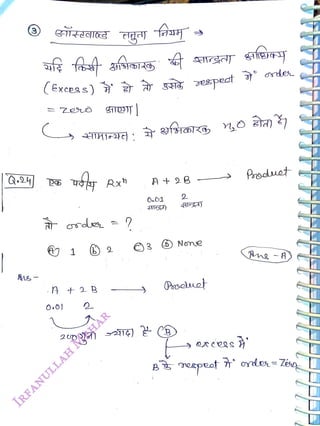 ③ ऑस्टवाल्ड तनुता नियम →
यदि किसी अभिकारक की सान्द्रता आधिक्य
(Excess) में हो तो उसके respect में order
= zero आएगा।
↳ सामान्यतः ये अभिकारक H₂O होता है।
Q.24 एक पदीय Rxⁿ A + 2B → Product
0.01 2
सान्द्रता सान्द्रता
तो order = ?
(a) 1 (b) 2 (c) 3 (d) None
Ans - A
Ans -
A + 2B → Product
0.01 2
200 गुना ज्यादा है (B)
→ excess में
B के respect में order = zero
IRFANULLAH